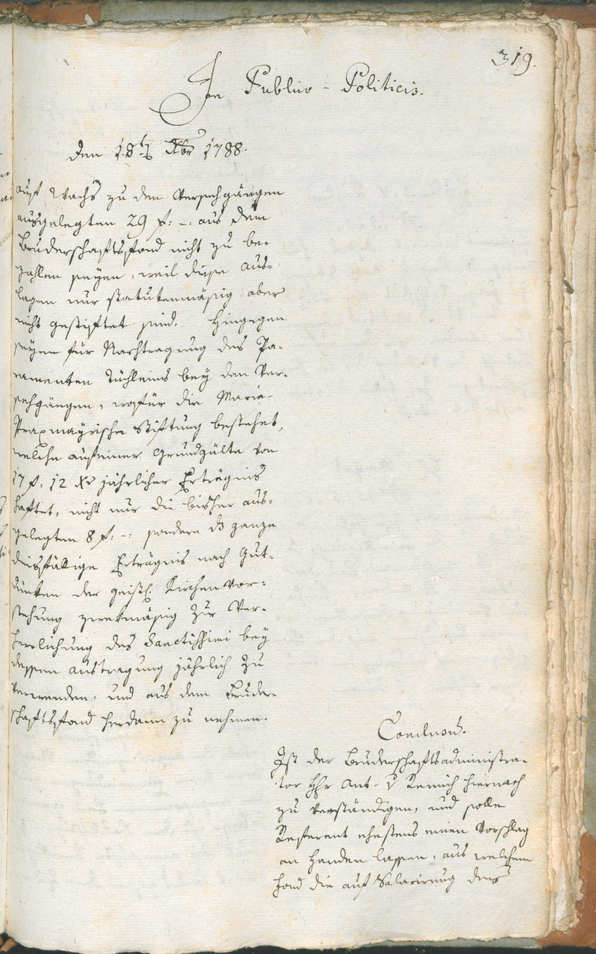 319.
In Publico-Politicis.
den 18t Xbr 1788.
auf Wachs zu den Versehgängen
ausgelegten 29 f: -: aus dem
Bruderschaftsfond nicht zu be-
zahlen seyen, weil diese Aus-
lagen nur statutenmäsig aber
nicht gestiftet sind. Hingegen
seyen für Nachtragung des Pa-
ramenten Tüchleins bey den Ver-
sehgängen, wofür die Maria-
Praxmayrische Stiftung bestehet,
welche auf einer Grundgülte von
17 f: 12 Xr jährlicher Erträgnis
haftet, nicht nur die bisher aus-
gelegten 8 f -: sondern die ganze
diesfällige Erträgnis nach Gut-
dünken der geistl: Kirchenvor-
stehung zwekmäsig zur Ver-
herrlichung des Sanctissimi bey
dessen Austragung jährlich zu
verwenden, und aus dem Bruder-
schaftsfond herdann zu nehmen.
Conclusum.
Ist der Bruderschaftsadministra-
tor Hr Ant: v Remich hiernach
zu verständigen, und solle
Referent ehestens einen Vorschlag
an Handen lassen, aus welchem
Fond die auf Salarirung des